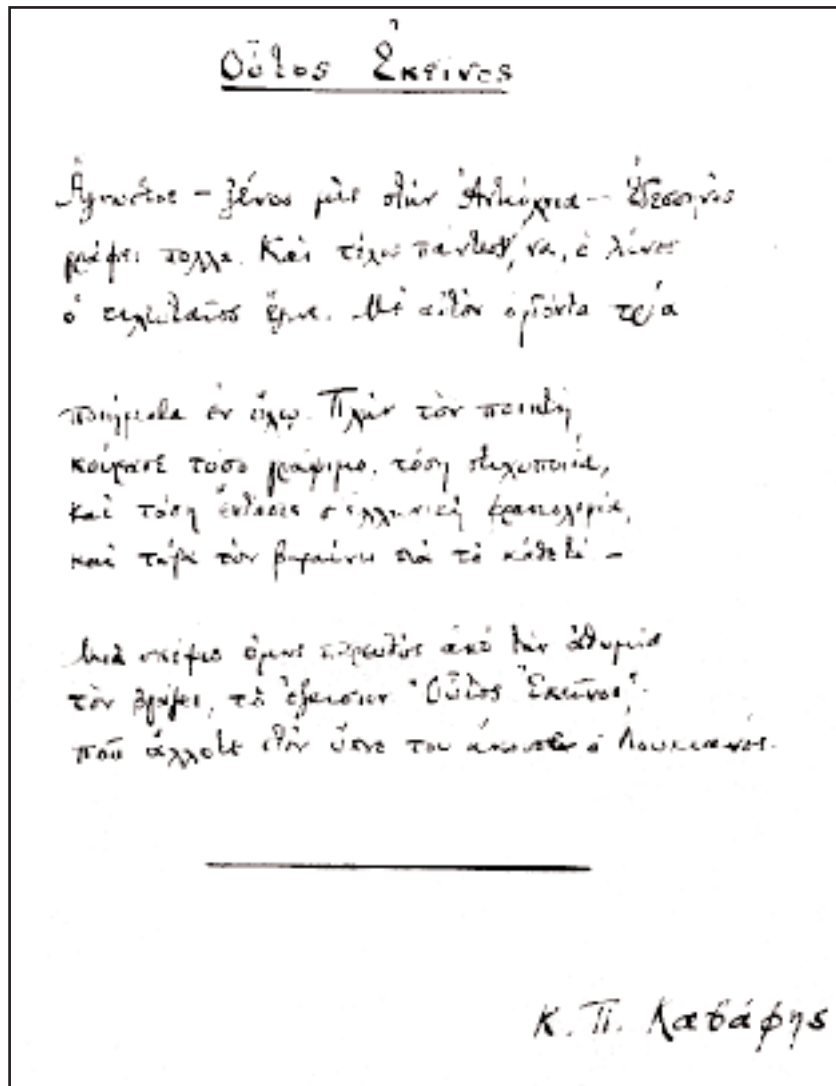 Οὗτος Ἐκεῖνος
Ἄγνωστος – ξένος μὲς στὴν Ἀντιόχεια – Ἐδεσσηνὸς
γράφει πολλά. Καὶ τέλος πάντων, νά, ὁ λίνος
ὁ τελευταῖος ἔγινε. Μὲ αὐτὸν ὀγδόντα τρία
ποιήματα ἐν ὅλῳ. Πλὴν τὸν ποιητὴ
κούρασε τόσο γράψιμο, τόση στιχοποιΐα,
καὶ τόση ἔντασις σ' ἑλληνικὴ φρασεολογία,
καὶ τώρα τὸν βαραίνει πιὰ τὸ κάθε τί –
Μιὰ σκέψις ὅμως παρευθὺς ἀπὸ τὴν ἀθυμία
τὸν βγάζει, τὸ ἐξαίσιον "Οὗτος Ἐκεῖνος",
ποῦ ἄλλοτε στὸν ὕπνο του ἄκουσε ὁ Λουκιανός.
Κ. Π. Καβάφης